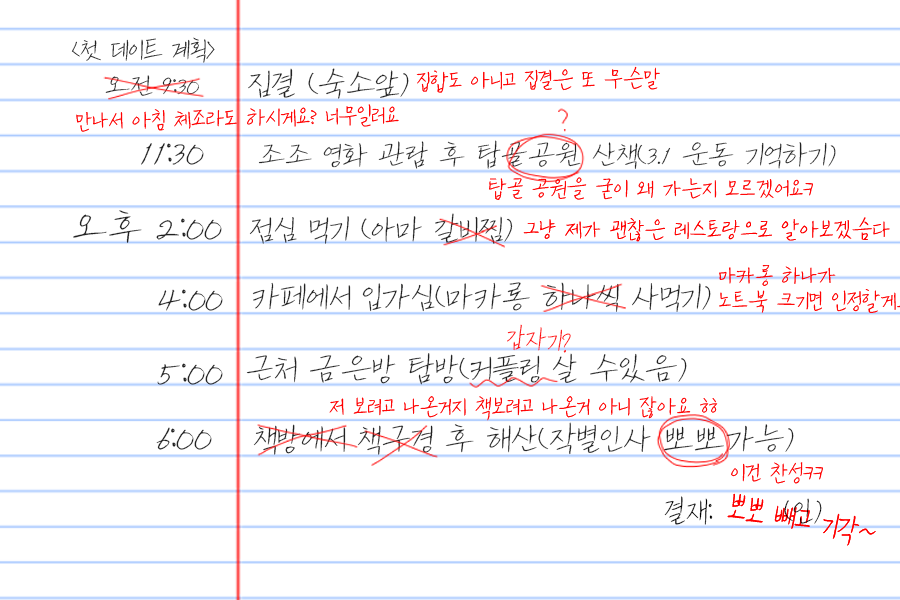 <첫 데이트 계획>
오전 9:30 집결 (숙소앞) 집합도 아니고 집결은 또 무슨말
만나서 아침 체조라도 하시게요? 너무일러요
?
11:30 조조 영화 관람 후 탑골공원 산책(3.1 운동 기억하기)
탑골 공원을 굳이 왜 가는지 모르겠어요ㅋ
오후 2:00 점심 먹기 (아마 갈비찜) 그냥 제가 괜찮은 레스토랑으로 알아보겠슴다
마카롱 하나가
4:00 카페에서 입가심(마카롱 하나씩 사먹기) 노트북 크기면 인정할게
갑자기?
5:00 근처 금은방 탐방(커플링 살 수있음)
저 보려고 나온거지 책보려고 나온거 아니 잖아요 ㅎㅎ
6:00 책방에서 책구경 후 해산(작별인사 뽀뽀 가능)
이건 찬성ㅋㅋ
결재: 뽀뽀 빼고 (인) 기각~